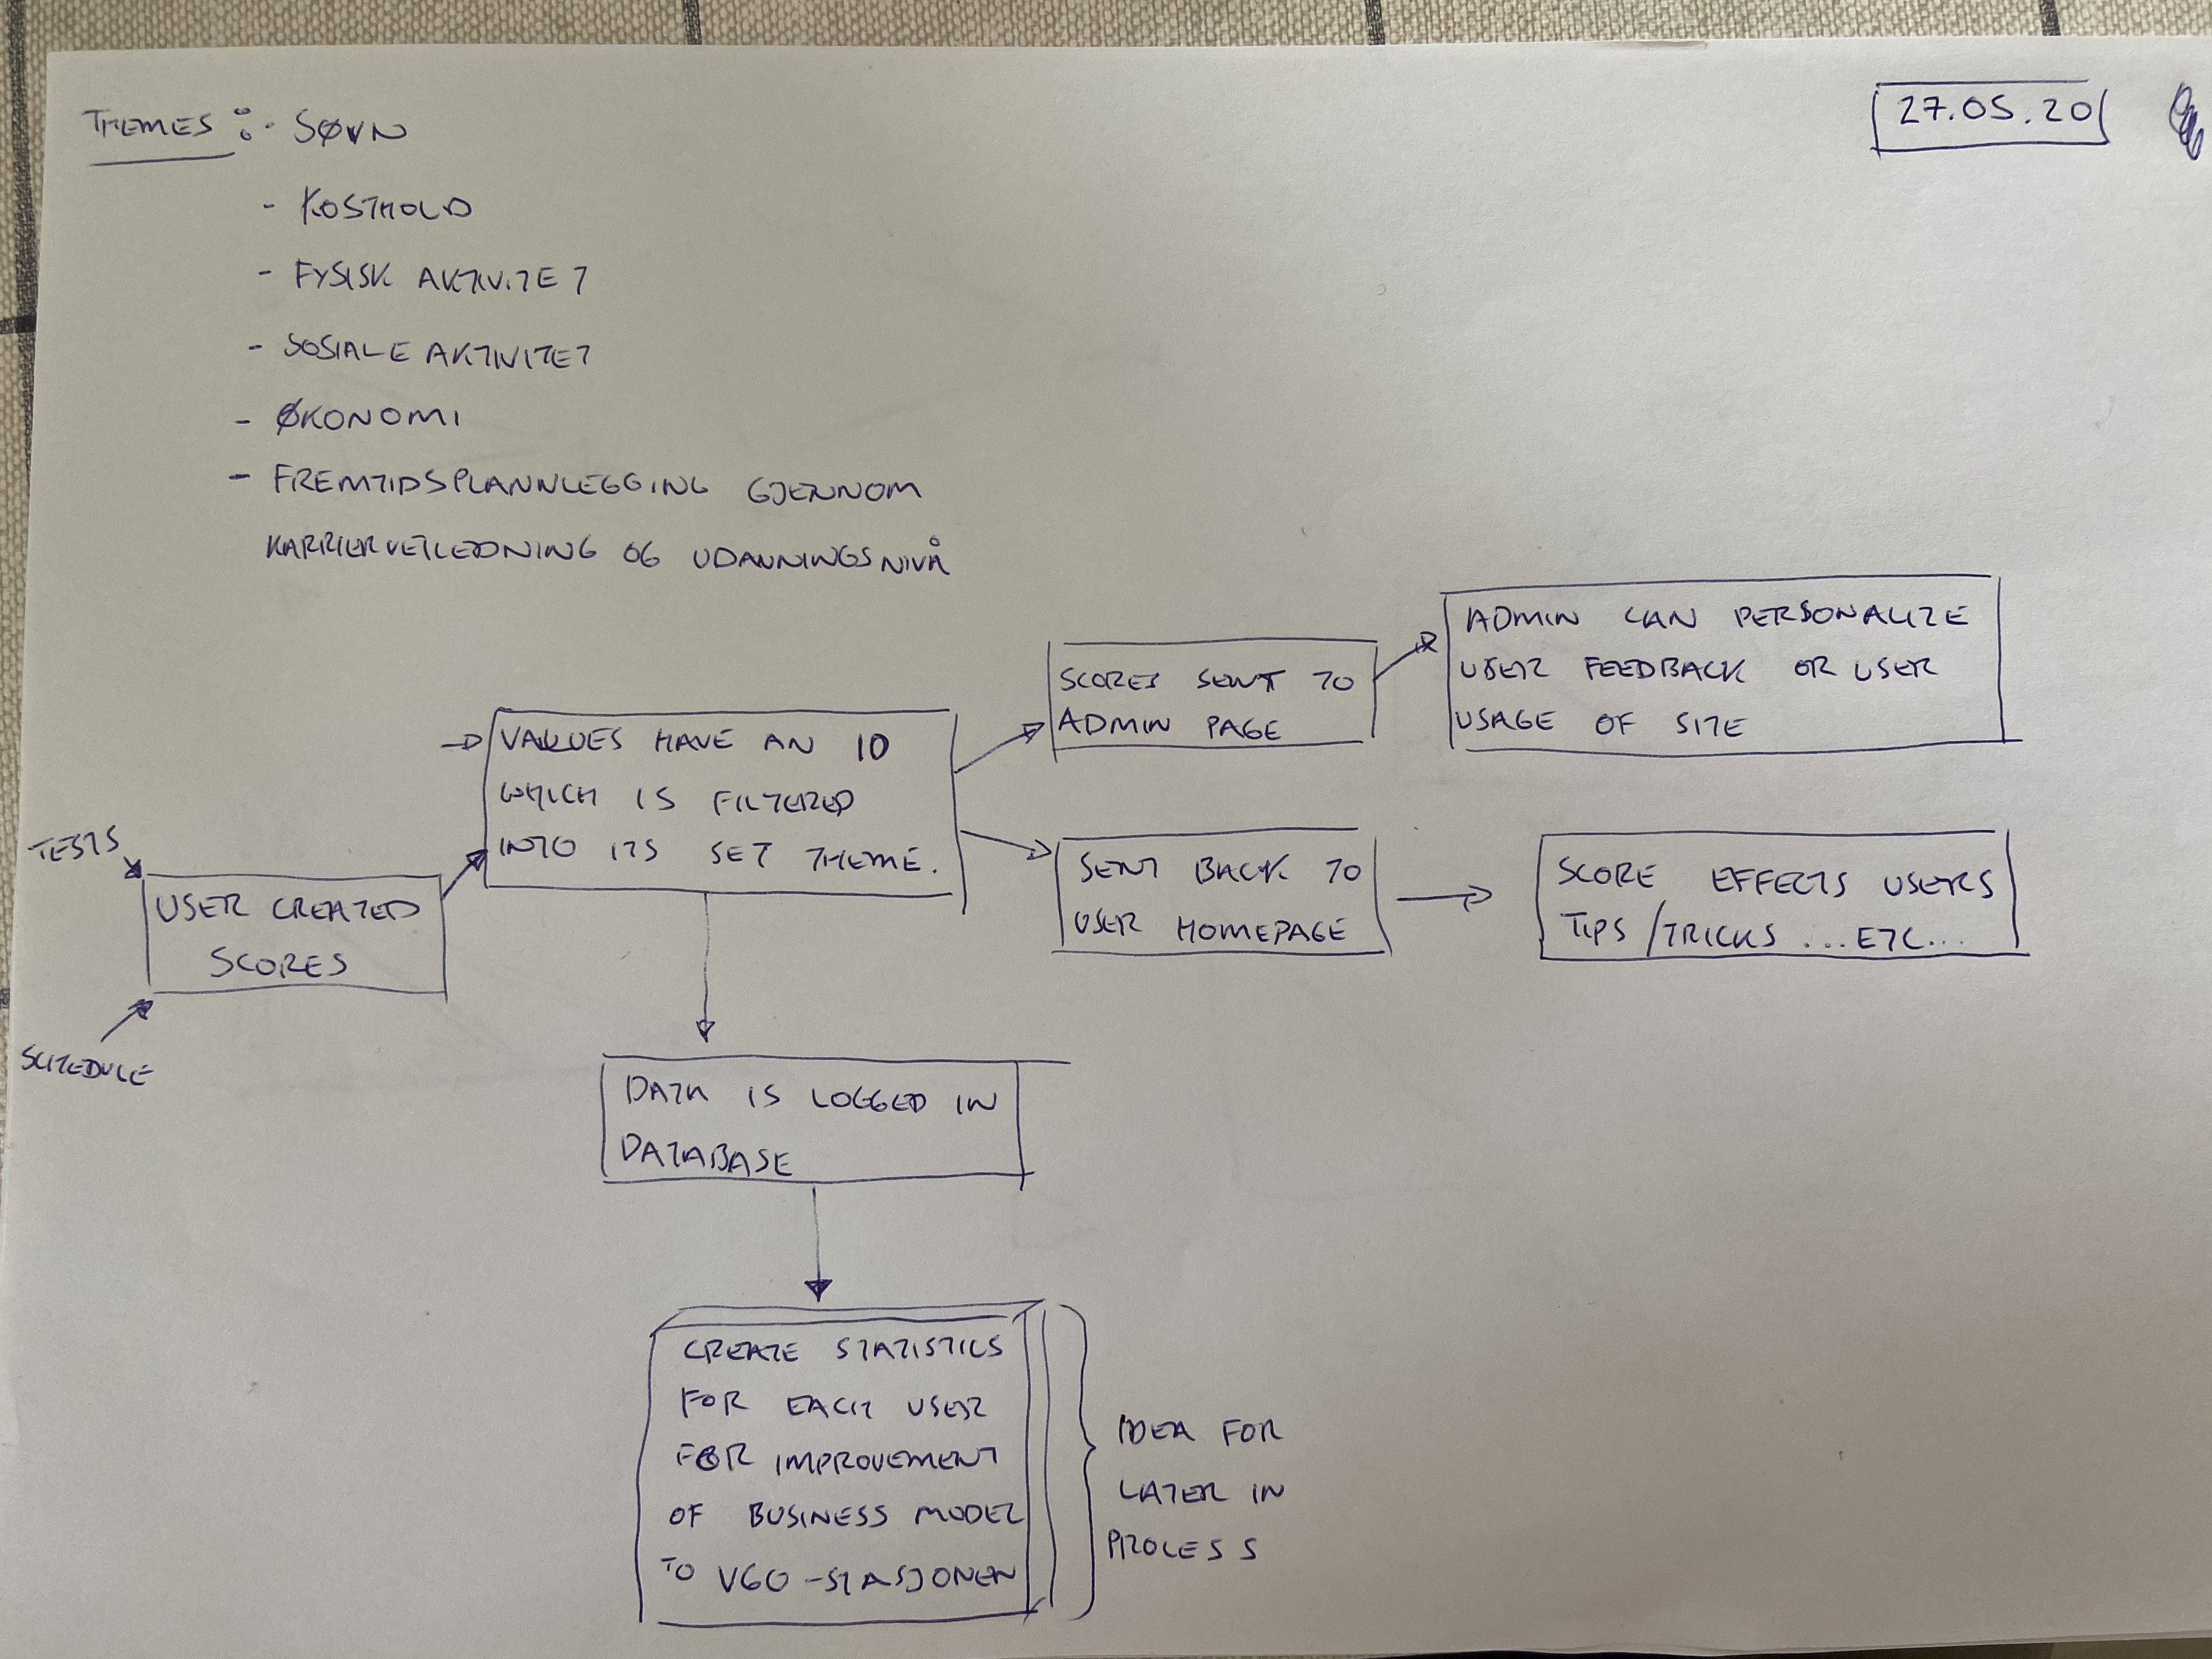 THEMES : - SØVN
27.05.20
- KOSTHOLD
- FYSISK AKTIVITET
- SOSIALE AKTIVITET
- ØKONOMI
- FREMTIDSPLANNLEGGING GJENNOM
KARRIERVEILEDNING OG UDANNINGSNIVÅ
TESTS
SCHEDULE
USER CREATED
SCORES
VALUES HAVE AN ID
WHICH IS FILTERED
INTO ITS SET THEME.
SCORES SENT TO
ADMIN PAGE
ADMIN CAN PERSONALIZE
USER FEEDBACK OR USER
USAGE OF SITE
SENT BACK TO
USER HOMEPAGE
SCORE EFFECTS USERS
TIPS/TRICKS ... ETC...
DATA IS LOGGED IN
DATABASE
CREATE STATISTICS
FOR EACH USER
FOR IMPROVEMENT
OF BUSINESS MODEL
TO VGO-STASJONEN
IDEA FOR
LATER IN
PROCESS